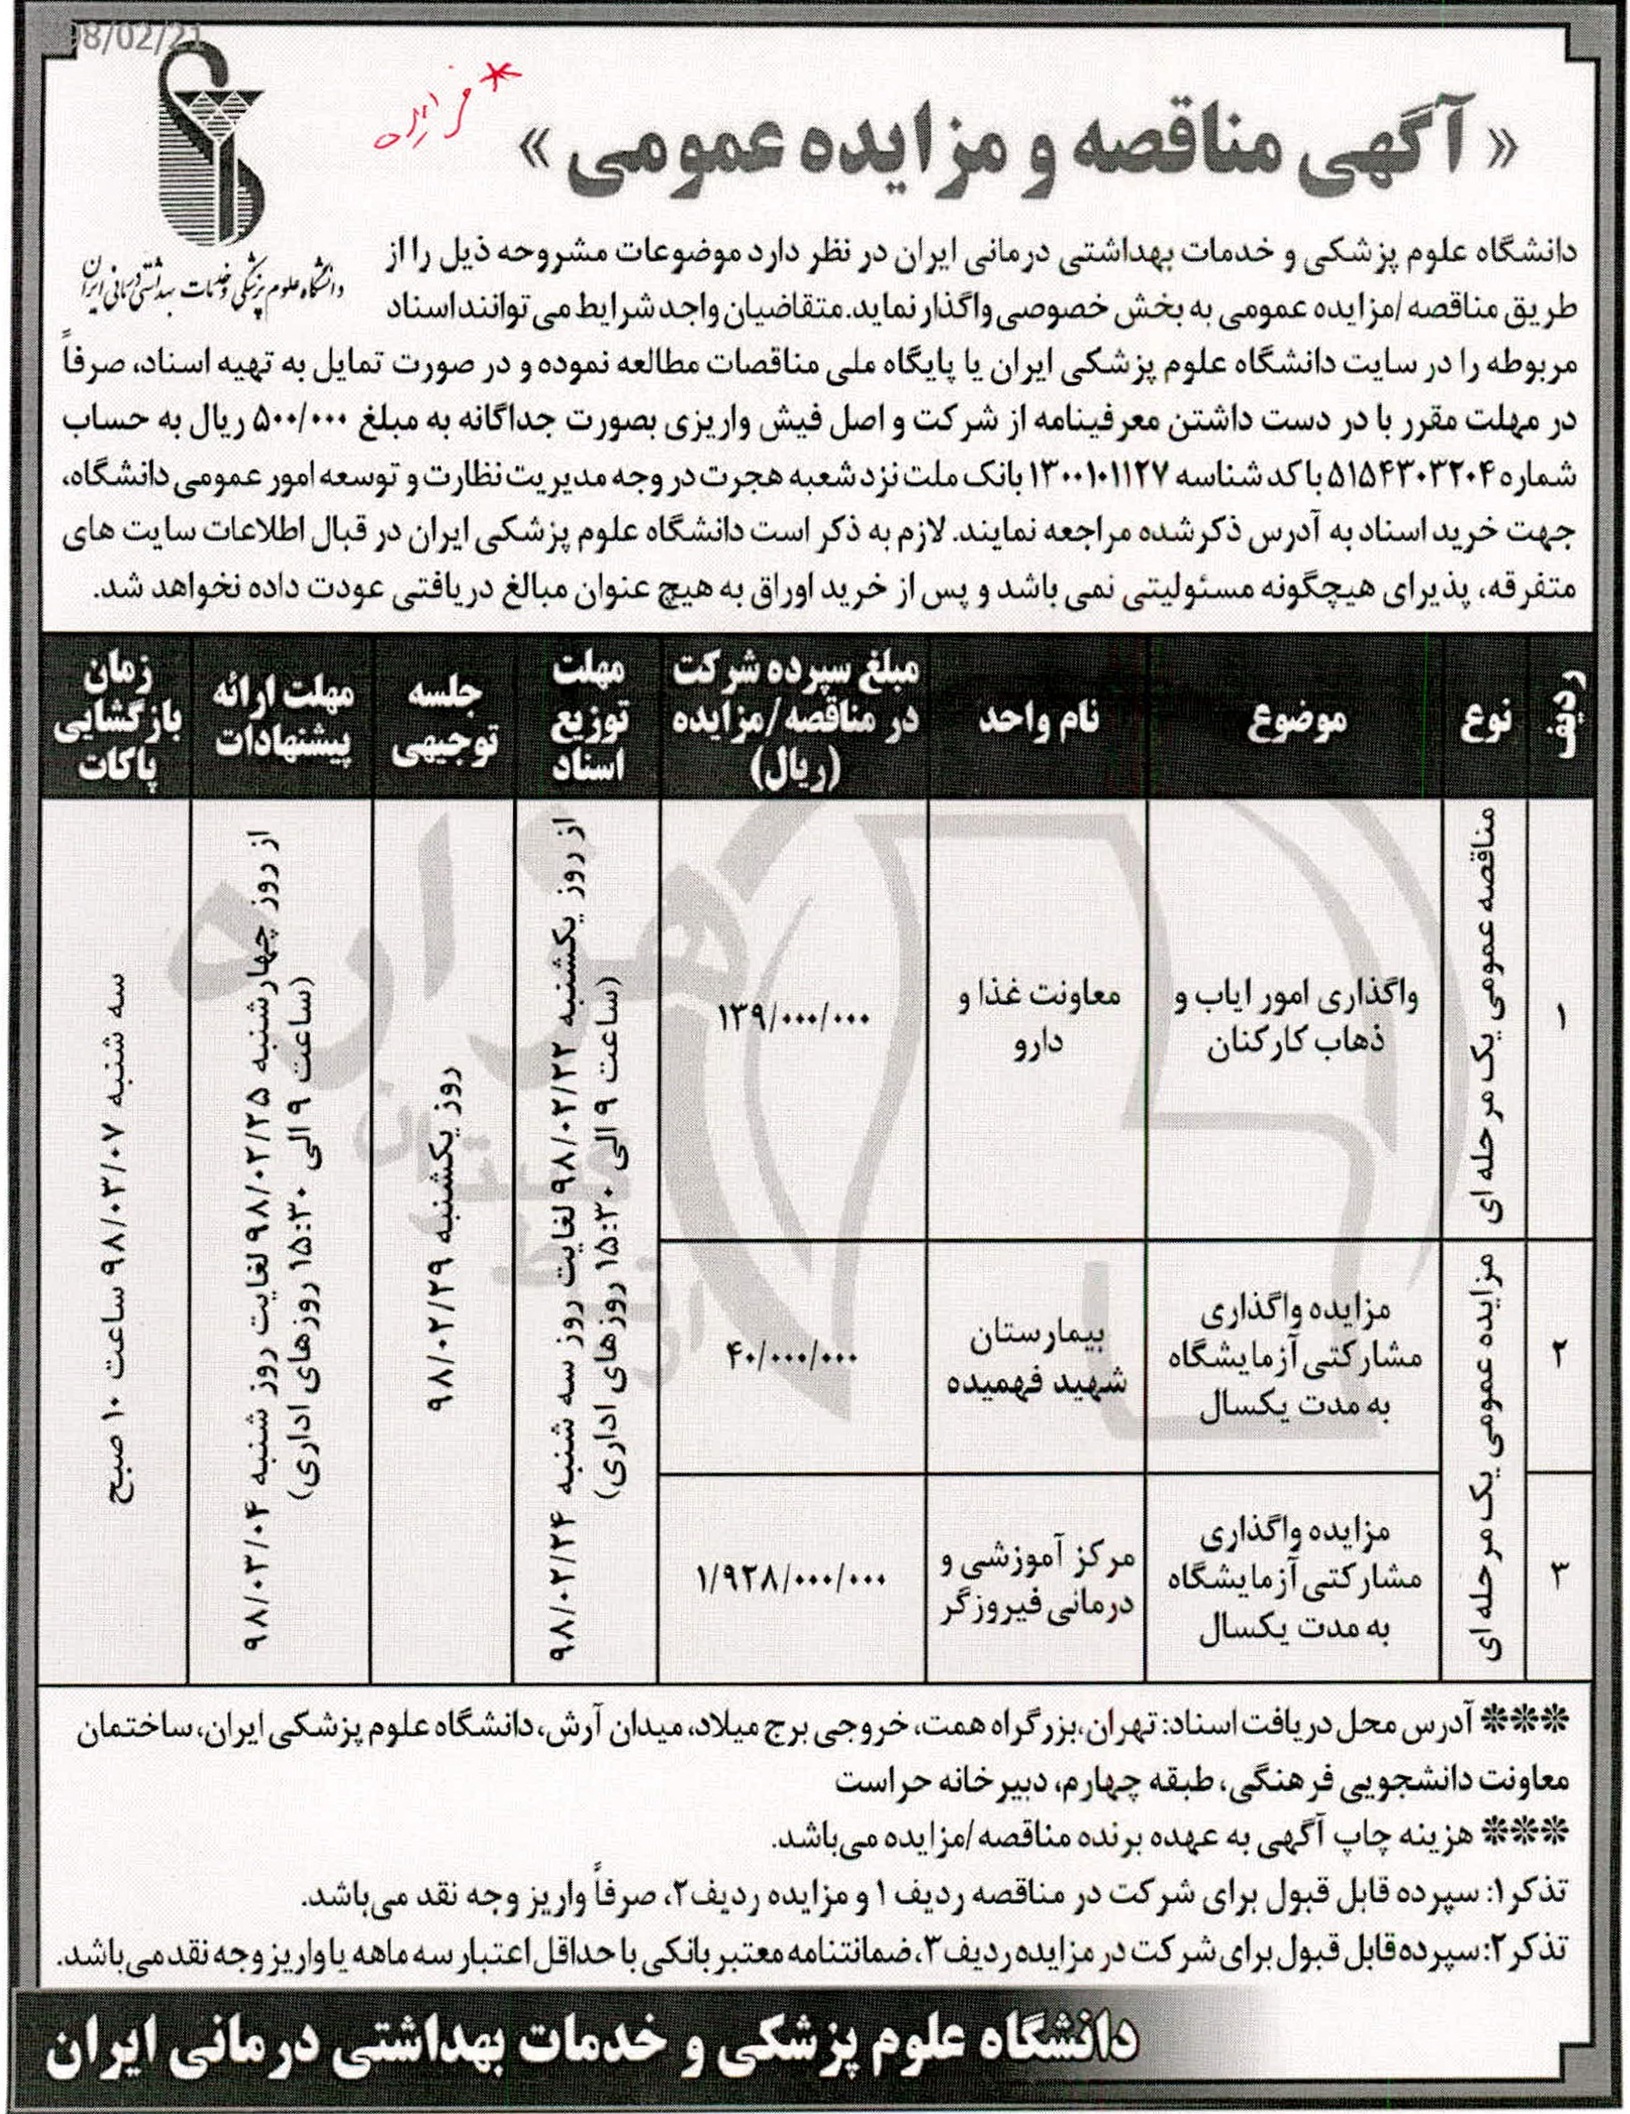 98/02/21
* مزایده
« آگهی مناقصه و مزایده عمومی »
دانشگاه علوم پزشکی و خدمات بهداشتی درمانی ایران
دانشگاه علوم پزشکی و خدمات بهداشتی درمانی ایران در نظر دارد موضوعات مشروحه ذیل را از
طریق مناقصه /مزایده عمومی به بخش خصوصی واگذار نماید.متقاضیان واجد شرایط می توانند اسناد
مربوطه را در سایت دانشگاه علوم پزشکی ایران یا پایگاه ملی مناقصات مطالعه نموده و در صورت تمایل به تهیه اسناد، صرفاً
در مهلت مقرر با در دست داشتن معرفینامه از شرکت و اصل فیش واریزی بصورت جداگانه به مبلغ ۵۰۰/۰۰۰ ریال به حساب
شماره ۵۱۵۴۳۰۳۲۰۴ با کد شناسه ۱۳۰۰۱۰۱۱۲۷ بانک ملت نزد شعبه هجرت در وجه مدیریت نظارت و توسعه امور عمومی دانشگاه،
جهت خرید اسناد به آدرس ذکر شده مراجعه نمایند. لازم به ذکر است دانشگاه علوم پزشکی ایران در قبال اطلاعات سایت های
متفرقه، پذیرای هیچگونه مسئولیتی نمی باشد و پس از خرید اوراق به هیچ عنوان مبالغ دریافتی عودت داده نخواهد شد.
ردیف
نوع
موضوع
نام واحد
مبلغ سپرده شرکت
در مناقصه/مزایده
(ریال)
مهلت
توزیع
اسناد
جلسه
توجیهی
مهلت ارائه
پیشنهادات
زمان
بازگشایی
پاکات
۱
مناقصه عمومی یک مرحله ای
واگذاری امور ایاب و
ذهاب کارکنان
معاونت غذا و
دارو
۱۳۹/۰۰۰/۰۰۰
از روز یکشنبه ۹۸/۰۲/۲۲ لغایت روز سه شنبه ۹۸/۰۲/۲۴
(ساعت ۹ الی ۱۵:۳۰ روزهای اداری)
روز یکشنبه ۹۸/۰۲/۲۹
از روز چهارشنبه ۹۸/۰۲/۲۵ لغایت روز شنبه ۹۸/۰۳/۰۴
(ساعت ۹ الی ۱۵:۳۰ روزهای اداری)
سه شنبه ۹۸/۰۳/۰۷ ساعت ۱۰ صبح
۲
مزایده عمومی یک مرحله ای
مزایده واگذاری
مشارکتی آزمایشگاه
به مدت یکسال
بیمارستان
شهید فهمیده
۴۰/۰۰۰/۰۰۰
۳
مزایده واگذاری
مشارکتی آزمایشگاه
به مدت یکسال
مرکز آموزشی و
درمانی فیروزگر
۱/۹۳۸/۰۰۰/۰۰۰
هزاره
*** آدرس محل دریافت اسناد: تهران،بزرگراه همت، خروجی برج میلاد، میدان آرش، دانشگاه علوم پزشکی ایران، ساختمان
معاونت دانشجویی فرهنگی، طبقه چهارم، دبیرخانه حراست
*** هزینه چاپ آگهی به عهده برنده مناقصه /مزایده می‌باشد.
تذکر۱: سپرده قابل قبول برای شرکت در مناقصه ردیف ۱ و مزایده ردیف۲، صرفاً واریز وجه نقد می‌باشد.
تذکر۲: سپرده قابل قبول برای شرکت در مزایده ردیف ۳، ضمانتنامه معتبر بانکی با حداقل اعتبار سه ماهه یا واریز وجه نقد می‌باشد.
دانشگاه علوم پزشکی و خدمات بهداشتی درمانی ایران